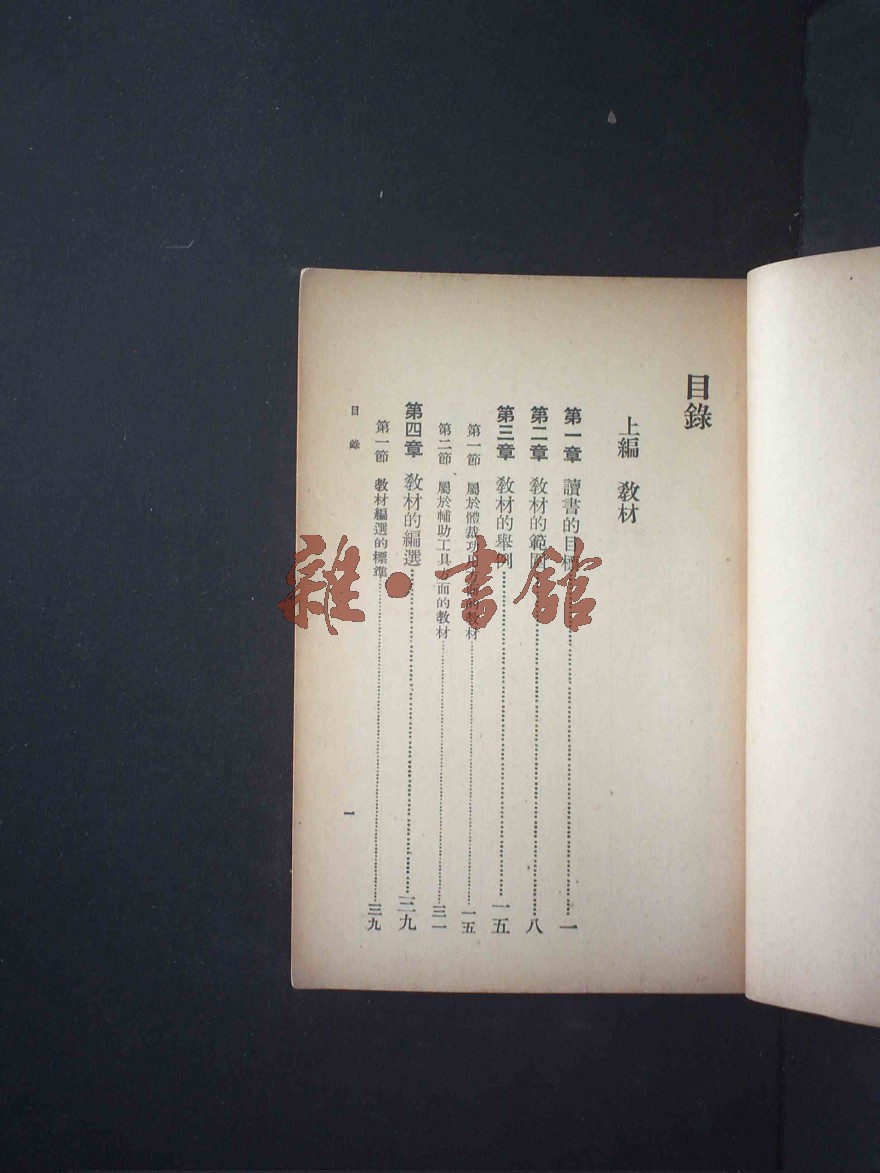 目錄
上編 教材
第一章 讀書的目標……一
第二章 教材的範圍……八
第三章 教材的舉例……一五
第一節 屬於體裁功用方面的教材……一五
第二節 屬於輔助工具方面的教材……三一
第四章 教材的編選……三九
第一節 教材編選的標準……三九
目錄
一
雜·書館